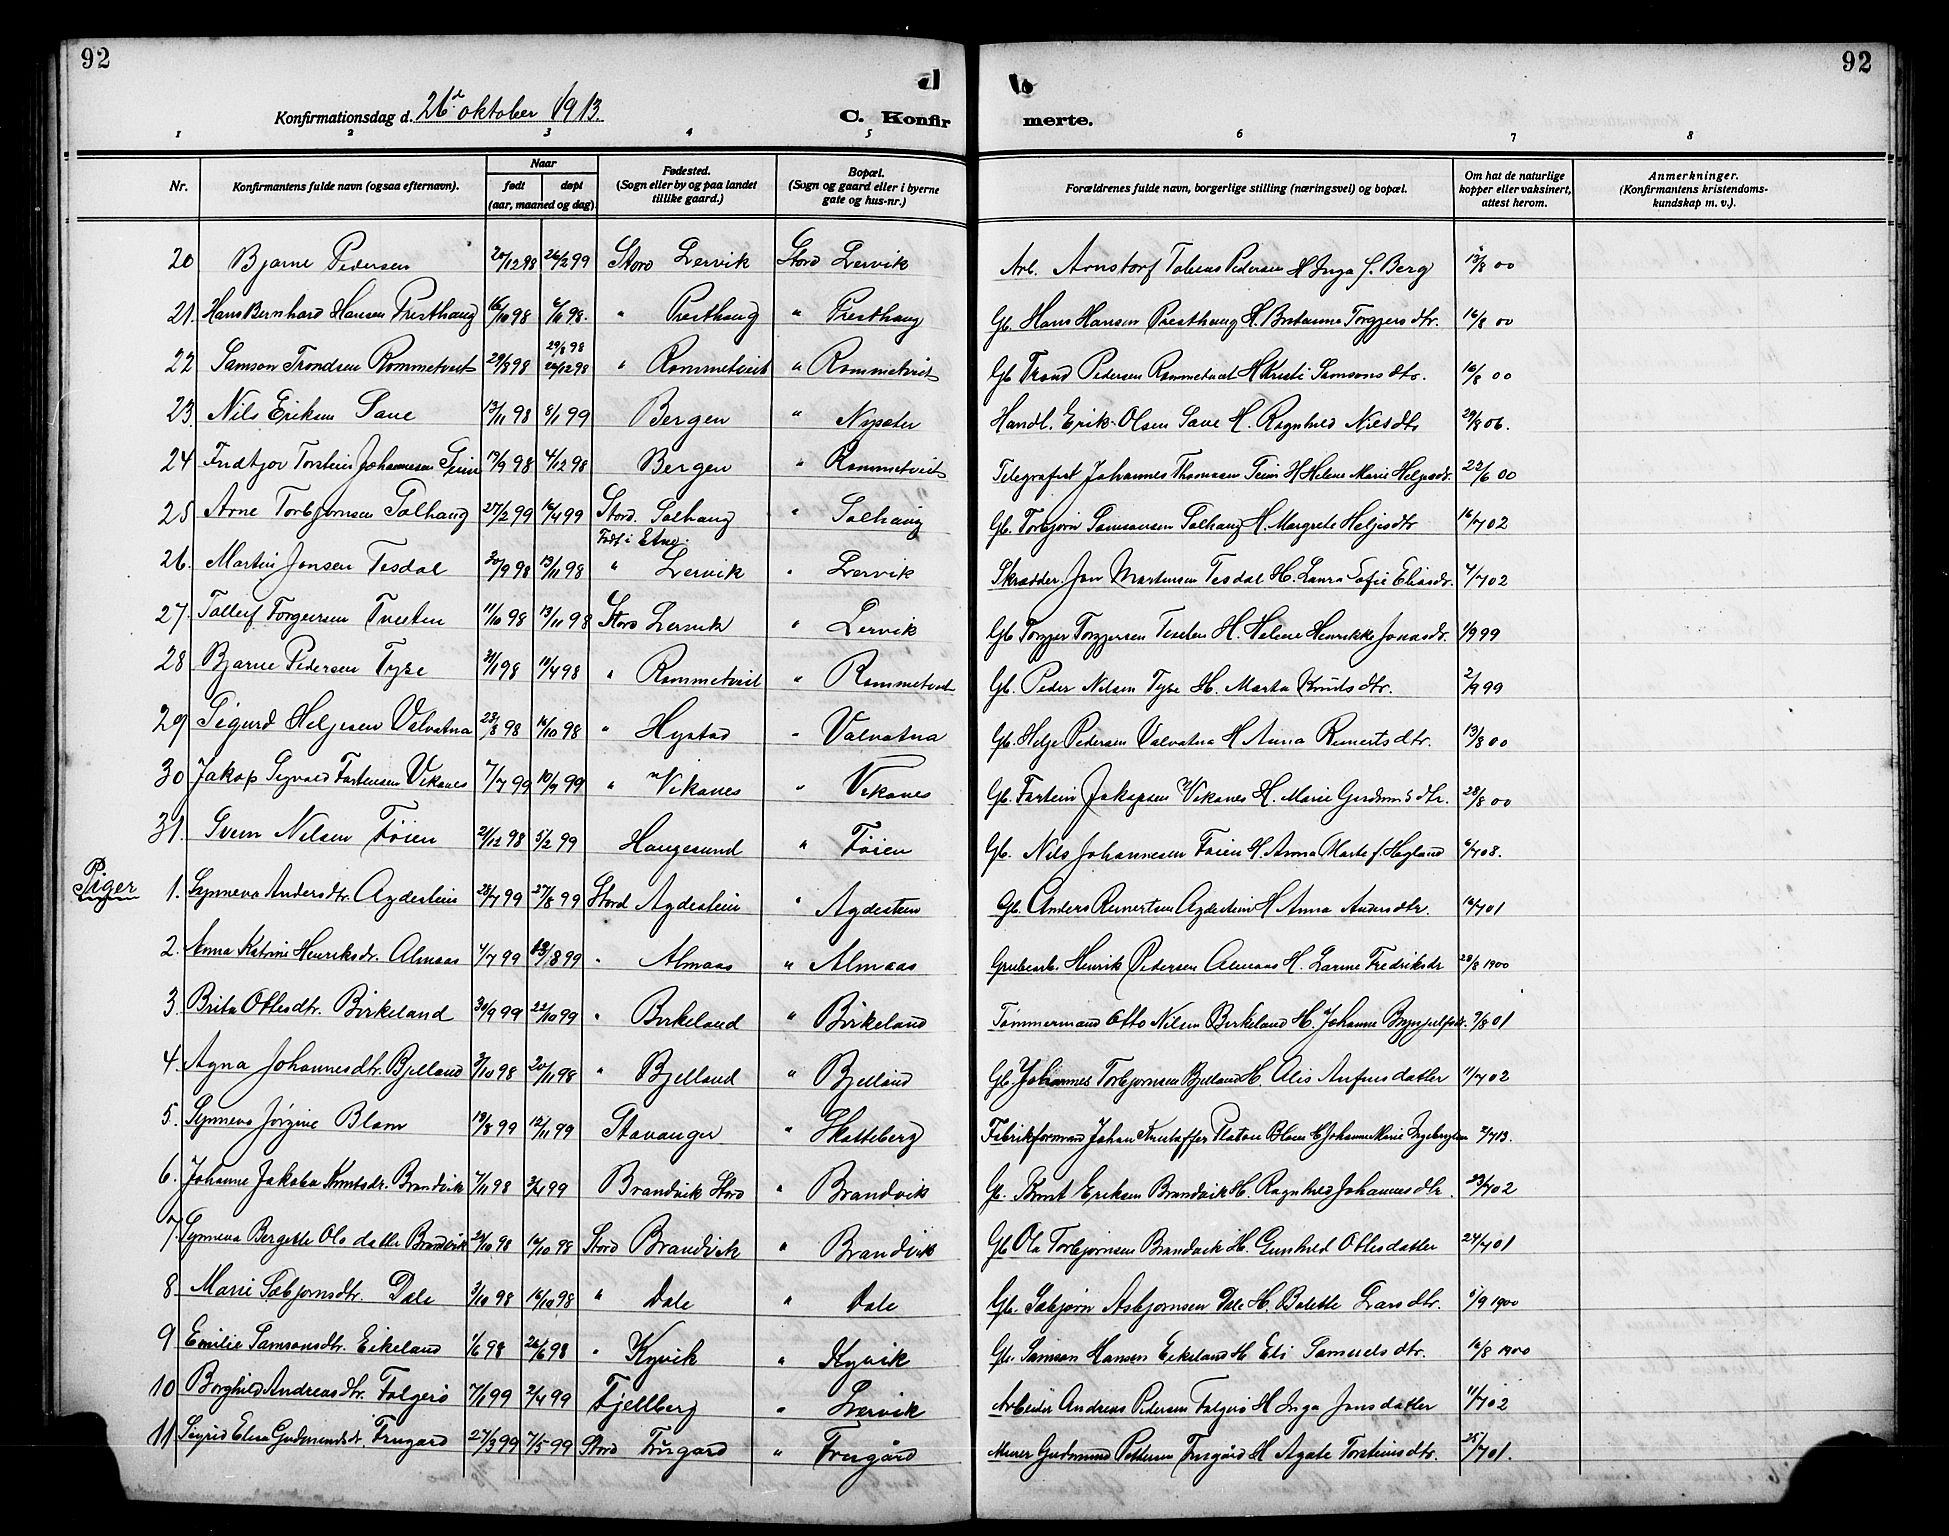 92
92
Konfirmationsdag d. 26de oktober 1913.
C. Konfir merte.
1 2 3 4 5 6 7 8
Nr. Konfirmantens fulde navn (ogsaa efternavn). Naar født døpt (aar, maaned og dag). Fødested. (Sogn eller by og paa landet tillike gaard.) Bopæl. (Sogn og gaard eller i byerne gate og hus-nr.) Forældrenes fulde navn, borgerlige stilling (næringsvei) og bopæl. Om hat de naturlige kopper eller vaksinert, attest herom. Anmerkninger. (Konfirmantens kristendoms-kundskap m. v.).
20 Bjarne Pedersen 20/12 98 26/2 99 Stord Lervik Stord Lervik Arb. Arnstorf Tobias Pedersen H Inga f. Berg 13/8 00
21. Hans Bernhard Hansen Presthaug 16/10 98 6/11 98. " Presthaug " Presthaug Gb. Hans Hansen Presthaug H. Torgjersdtr. 16/8 00
22 Samson Trondsen Rommetveit 29/8 98 29/8 98 26/12 98 " Rommetveit " Rommetveit Gb Trond Pedersen Rommetveit H Kristi Samsonsdtr. 16/8 00
23. Nils Eriksen Save 13/11 98 8/1 99 Bergen " Nysæter Handl. Erik Olsen Save H. Ragnhild Nilsdtr 29/8 06.
24 Fridtjov Torstein Johannesen Teim 17/9 98 4/12 98 Bergen " Rommetveit Telegrafist Johannes Thomassen Teim H Helene Marie Heljesdr. 22/6 00
25 Arne Torbjørnsen Solhaug 27/2 99 16/4 99 Stord. Solhaug " Solhaug Gb. Torbjørn Samsonsen Solhaug H. Margrete Heljesdtr 16/7 02
26. Martin Jonsen Tesdal 30/9 98 13/11 98 Født i Etne. " Lervik " Lervik Skrædder. Jon Martensen Tesdal H. Laura Sofie Eliasdr. 4/7 02
27. Tolleif Torgeirsen Tveiten 11/10 98 13/11 98 Stord Lervik " Lervik Gb Torgjer Torgjersen H. Helene Henrikke Jonasdr. 1/9 99
28 Bjarne Pedersen Tyse 31/1 98 11/4 98 " Rommetveit " Rommetveit Gb. Peder Nilsen Tyse H. Marta Knutsdtr. 2/9 99
29 Sigurd Heljesen Valvatna 28/8 98 16/10 98 " Hystad " Valvatna Gb. Helje Pedersen Valvatna H Anna Reinertsdtr. 13/8 00
30 Jakop Sigvald Fartensen Vikanes 7/7 99 10/9 99 " Vikanes " Vikanes Gb. Fartein Jakopsen Vikanes H. Marie Gudmunsdtr. 28/8 00
31. Svein Nilsen Tøien 21/12 98 5/2 99 Haugesund " Tøien Gb. Nils Johannesen Tøien H. Anna Marta f. Hogland 6/7 08.
Piger
1. Synneva Andersdtr. Agdestein 28/7 99 27/8 99 Stord Agdestein " Agdestein Gb. Anders Reinertsen Agdestein H Anna Andersdtr. 16/7 01
2. Anna Katrine Henriksdr. Almaas 4/7 99 13/8 99 " Almaas " Almaas Grubearb. Henrik Pedersen Almaas H. Larine Fredriksdr 28/8 1900
3. Brita Ottesdtr. Birkeland 30/9 99 22/10 99 " Birkeland " Birkeland Tømmermand Otto Nilsen Birkeland H. Johanne Brynjulfsdr. 9/8 01
4. Agna Johannesdtr. Bjelland 3/10 98 20/11 98 " Bjelland " Bjelland Gb. Johannes Torbjørnsen Bjelland H. Alis Anfinsdatter 11/7 02
5. Synneva Jørgine Blom 19/8 99 12/11 99 Stavanger " Skatteberg Fabrikformand Johan Kristoffer Blom H Johanne Marie 2/7 13.
6. Johanne Jakoba Knutsdr. Brandvik 7/11 98 2/4 99 Brandvik Stord " Brandvik Gb. Knut Eriksen Brandvik H. Ragnhild Johannesdtr. 23/7 02
7. Synneva Bergette Ola datter Brandvik 2/10 98 16/10 98 Stord Brandvik " Brandvik Gb Ola Torbjørnsen Brandvik H. Gunhild Ottesdatter 24/7 01
8 Marie Sæbjørnsdtr. Dale 3/10 98 16/10 98 " Dale " Dale Gb. Sæbjørn Asbjørnsen Dale H. Bolette Larsdtr. 5/9 1900
9 Emilie Samsonsdtr. Eikeland 1/6 98 26/6 98 " Kyvik " Kyvik Gb. Samson Hansen Eikeland H Eli Samuelsdtr. 16/8 1900
10 Borghild Andreasdtr. Folgerø 7/1 99 2/4 99 Fjellberg " Lervik Arbeider Andreas Pedersen Folgerø H Inga Jonsdatter 11/7 02
11 Sigrid Elisa Gudmundsdr. Frugaard 27/3 99 7/5 99 Stord Frugaard " Frugård Murer Gudmund Pettersen Frugård H Agate Torsteinsdtr. 25/7 01.